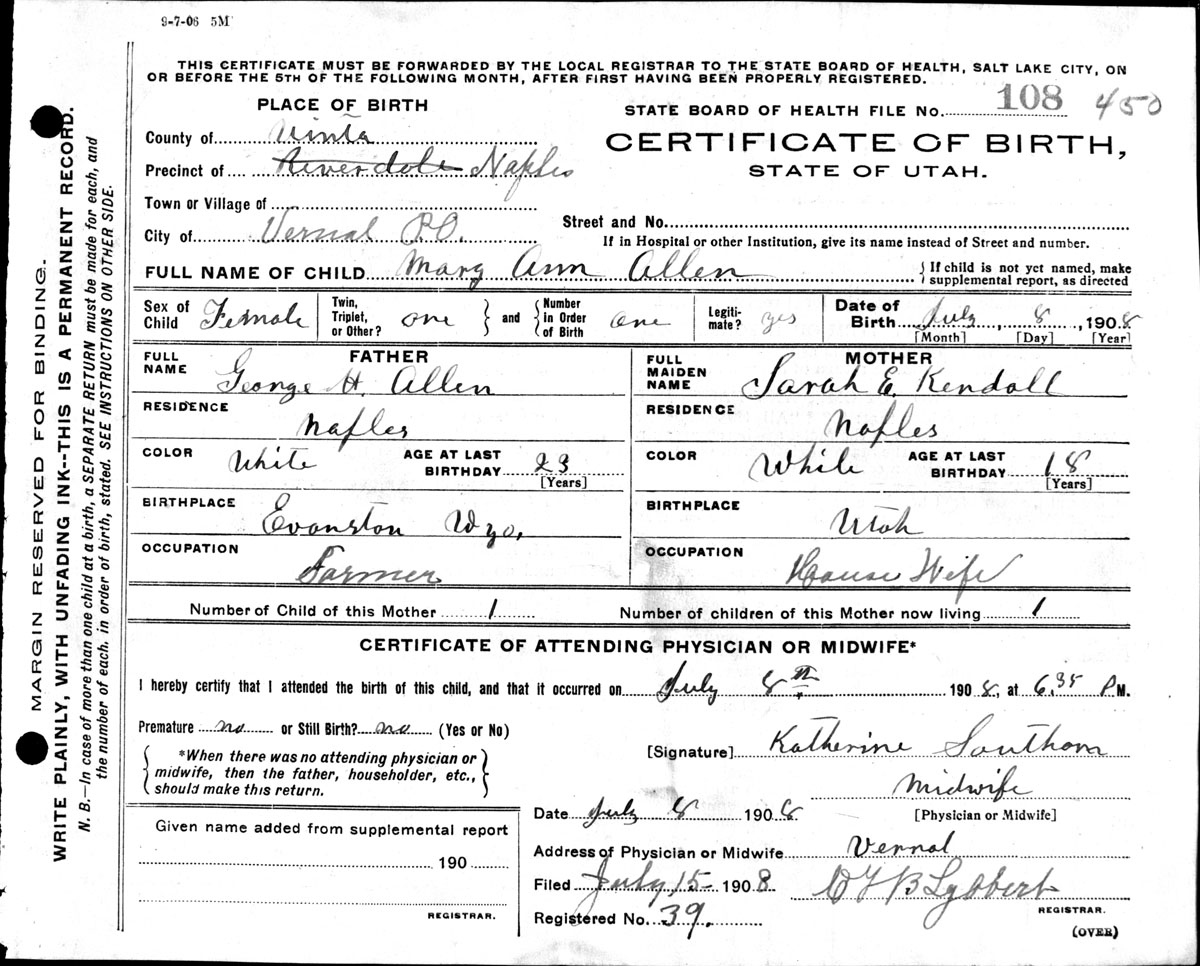 9-7-06 5M
THIS CERTIFICATE MUST BE FORWARDED BY THE LOCAL REGISTRAR TO THE STATE BOARD OF HEALTH, SALT LAKE CITY, ON
OR BEFORE THE 5TH OF THE FOLLOWING MONTH, AFTER FIRST HAVING BEEN PROPERLY REGISTERED.
PLACE OF BIRTH
STATE BOARD OF HEALTH FILE No. 108 450
County of Uinta
CERTIFICATE OF BIRTH,
STATE OF UTAH.
Precinct of Riverdale Naples
Town or Village of
Street and No.
City of Vernal P.O.
If in Hospital or other Institution, give its name instead of Street and number.
FULL NAME OF CHILD Mary Ann Allen
{ If child is not yet named, make
supplemental report, as directed
Sex of Child Female
Twin, Triplet, or Other? one } and { Number in Order of Birth one
Legiti-mate? yes
Date of Birth July, 8, 1908
[Month] [Day] [Year]
FATHER
FULL NAME George H. Allen
MOTHER
FULL MAIDEN NAME Sarah E. Kendall
RESIDENCE Naples
RESIDENCE Naples
COLOR White AGE AT LAST BIRTHDAY 23 [Years]
COLOR White AGE AT LAST BIRTHDAY 18 [Years]
BIRTHPLACE Evanston Wyo.
BIRTHPLACE Utah
OCCUPATION Farmer
OCCUPATION House Wife
Number of Child of this Mother 1
Number of children of this Mother now living 1
CERTIFICATE OF ATTENDING PHYSICIAN OR MIDWIFE*
I hereby certify that I attended the birth of this child, and that it occurred on July 8th 1908, at 6.35 P.M.
Premature no or Still Birth? no (Yes or No)
{ *When there was no attending physician or
midwife, then the father, householder, etc.,
should make this return. }
[Signature] Katherine Southam
Midwife
[Physician or Midwife]
Date July 8 1908
Given name added from supplemental report
190
REGISTRAR.
Address of Physician or Midwife Vernal
Filed July, 15- 1908
REGISTRAR.
Registered No. 39.
(OVER)
MARGIN RESERVED FOR BINDING.
WRITE PLAINLY, WITH UNFADING INK--THIS IS A PERMANENT RECORD.
N. B.—In case of more than one child at a birth, a SEPARATE RETURN must be made for each, and
the number of each, in order of birth, stated. SEE INSTRUCTIONS ON OTHER SIDE.